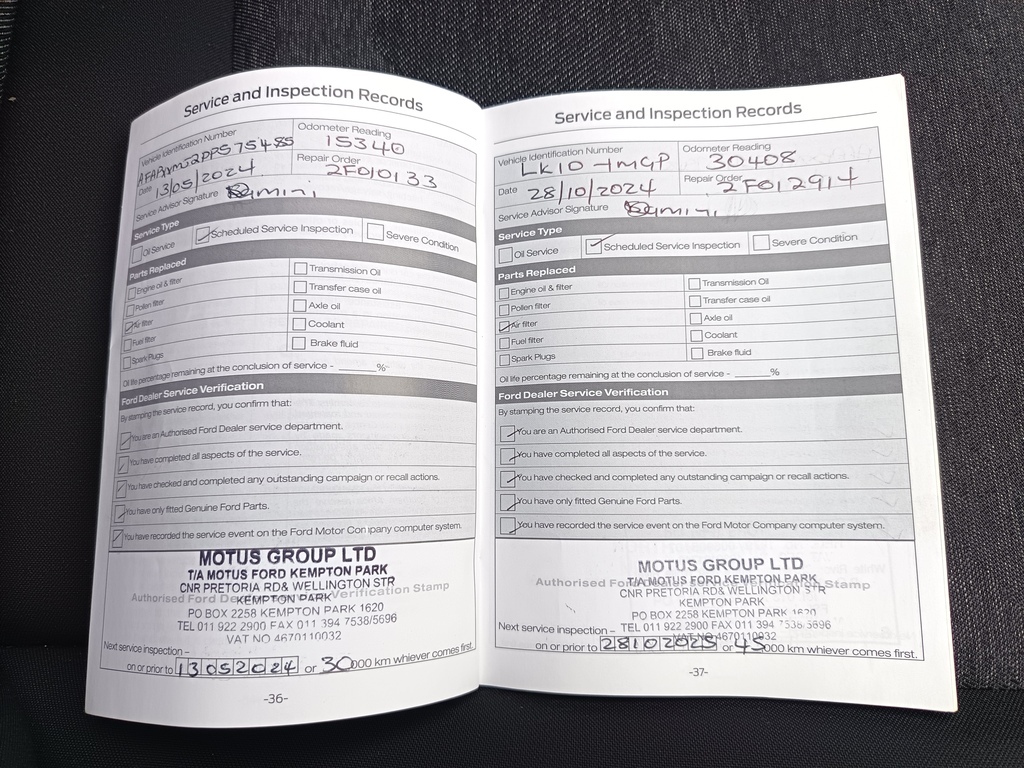 Service and Inspection Records
Vehicle Identification Number
Odometer Reading
15340
Date 13/05/2024
Repair Order
2F010133
Service Advisor Signature
Service Type
Oil Service
Scheduled Service Inspection
Severe Condition
Parts Replaced
Engine oil & filter
Transmission Oil
Pollen filter
Transfer case oil
Air filter
Axle oil
Fuel filter
Coolant
Spark Plugs
Brake fluid
Oil life percentage remaining at the conclusion of service - ______%
Ford Dealer Service Verification
By stamping the service record, you confirm that:
You are an Authorised Ford Dealer service department.
You have completed all aspects of the service.
You have checked and completed any outstanding campaign or recall actions.
You have only fitted Genuine Ford Parts.
You have recorded the service event on the Ford Motor Company computer system.
MOTUS GROUP LTD
T/A MOTUS FORD KEMPTON PARK
CNR PRETORIA RD& WELLINGTON STR
Authorised Ford Dealer Service Verification Stamp
KEMPTON PARK
PO BOX 2258 KEMPTON PARK 1620
TEL 011 922 2900 FAX 011 394 7538/5696
VAT NO 4670110032
Next service inspection –
on or prior to 13052024 or 30000 km whiever comes first.
-36-
Service and Inspection Records
Vehicle Identification Number
LK10-HMGP
Odometer Reading
30408
Date 28/10/2024
Repair Order
2F012914
Service Advisor Signature
Service Type
Oil Service
Scheduled Service Inspection
Severe Condition
Parts Replaced
Engine oil & filter
Transmission Oil
Pollen filter
Transfer case oil
Air filter
Axle oil
Fuel filter
Coolant
Spark Plugs
Brake fluid
Oil life percentage remaining at the conclusion of service - ______%
Ford Dealer Service Verification
By stamping the service record, you confirm that:
You are an Authorised Ford Dealer service department.
You have completed all aspects of the service.
You have checked and completed any outstanding campaign or recall actions.
You have only fitted Genuine Ford Parts.
You have recorded the service event on the Ford Motor Company computer system.
MOTUS GROUP LTD
T/A MOTUS FORD KEMPTON PARK
Authorised Ford Dealer Service Verification Stamp
CNR PRETORIA RD& WELLINGTON STR
KEMPTON PARK
PO BOX 2258 KEMPTON PARK 1620
TEL 011 922 2900 FAX 011 394 7538/5696
VAT NO 4670110032
Next service inspection –
on or prior to 28102025 or 45000 km whiever comes first.
-37-